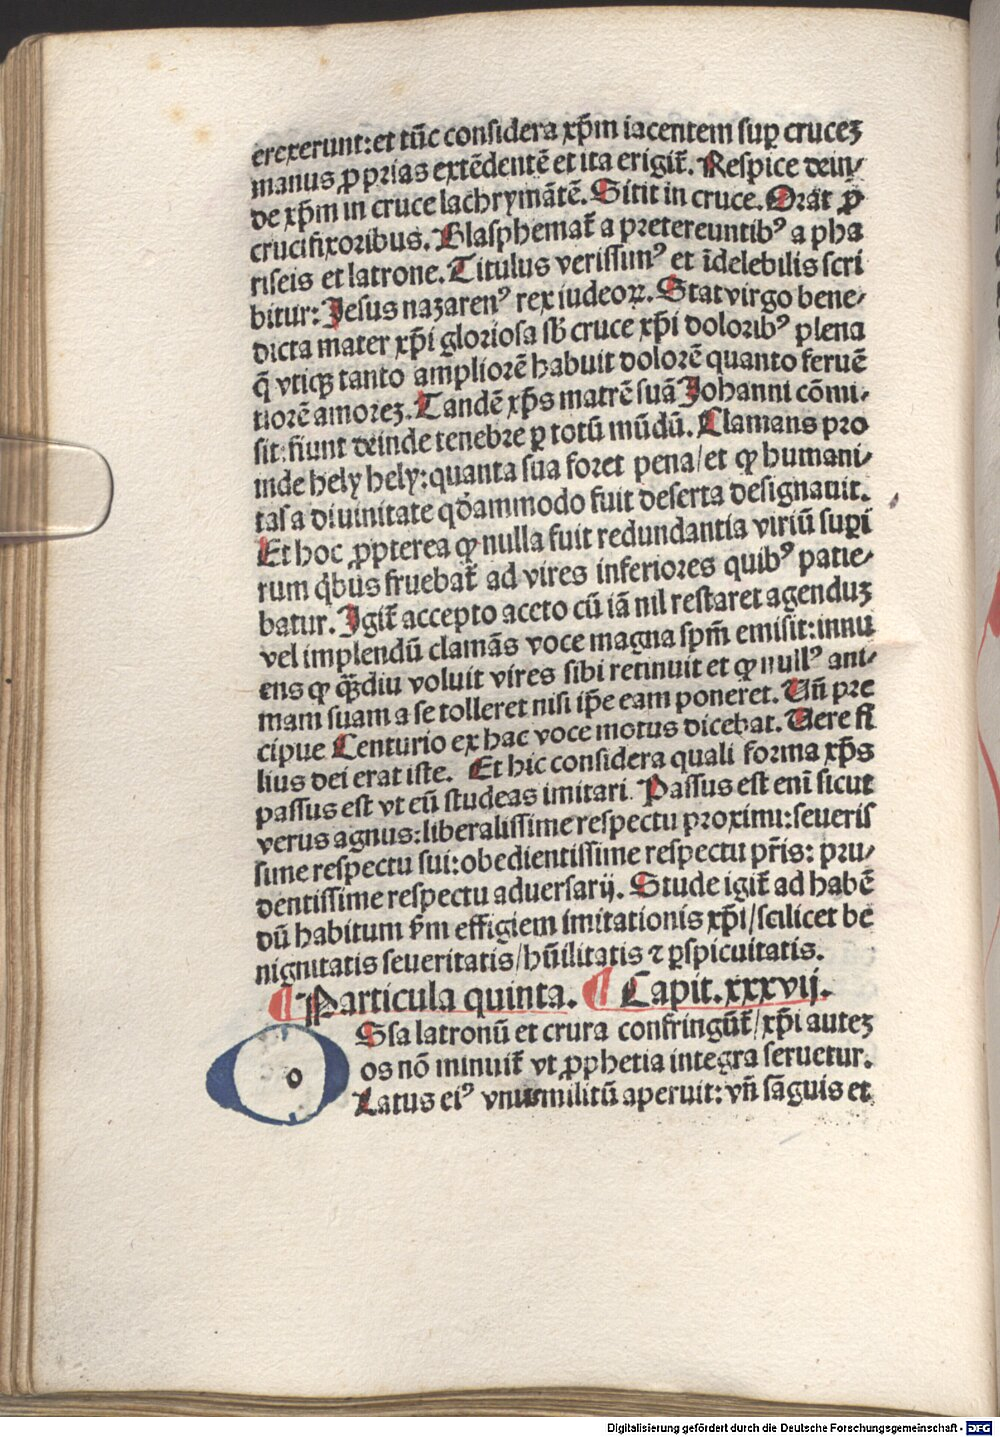 erexerunt: et tūc considera xp̄m iacentem sup̱ cruceʒ
manus ꝓprias extēdentē et ita erigit̄. Respice dein⸗
de xp̄m in cruce lachrymātē. Sitit in cruce. Orat̄ ꝓ
crucifixoribus. Blasphemat̄ a pretereuntibꝰ a pha
riseis et latrone. Titulus verissimꝰ et īdelebilis scri
bitur: Jesus nazarenꝰ rex iudeoꝝ. Stat virgo bene⸗
dicta mater xp̄i gloriosa sb̄ cruce xp̄i doloribꝰ plena
q̄ vtiqꝫ tanto ampliorē habuit dolorē quanto feruē
tiorē amoreʒ. Tandē xp̄s matrē suā Johanni cōmi⸗
sit: fiunt deinde tenebre ꝑ totū mūdū. Clamans pro
inde hely hely: quanta sua foret pena/ et ꝙ humani⸗
tas a diuinitate qd̄ammodo fuit deserta designauit.
Et hoc ꝓpterea ꝙ nulla fuit redundantia viriū suꝑi
rum qͥbus fruebat̄ ad vires inferiores quibꝰ patie⸗
batur. Igit̄ accepto aceto cū iā nil restaret agenduʒ
vel implendū clamās voce magna sp̄m emisit: innu
ens ꝙ qᷓꝫdiu voluit vires sibi retinuit et ꝙ nullꝰ ani⸗
mam suam a se tolleret nisi ip̄e eam poneret. Un̄ pre
cipue Centurio ex hac voce motus dicebat. Uere fi
lius dei erat iste. Et hic considera quali forma xp̄s
passus est vt eū studeas imitari. Passus est enī sicut
verus agnus: liberalissime respectu proximi: seueris
sime respectu sui: obedientissime respectu pr̄is: pru⸗
dentissime respectu aduersarij. Stude igit̄ ad habē
dū habitum ẜm effigiem imitationis xp̄i/ scilicet be
nignitatis seueritatis/ hūilitatis ⁊ ꝑspicuitatis.
¶ Particula quinta. ¶ Capit. xxxvij.
OSsa latronū et crura confringūt̄/ xp̄i auteʒ
os nō minuit̄ vt ꝓphetia integra seruetur.
Latus eiꝰ vnus militū aperuit: vn̄ sāguis et
Digitalisierung gefördert durch die Deutsche Forschungsgemeinschaft - DFG